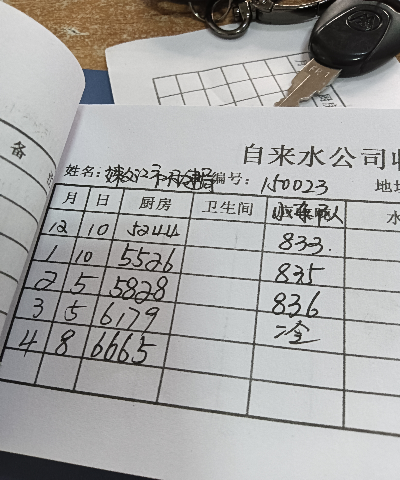 备
自来水公司收
姓名: 编号: 150023 地址
月 日 厨房 卫生间 水
12 10 5244 833.
1 10 5526 835
2 5 5828 836
3 5 6179 冷
4 8 6665